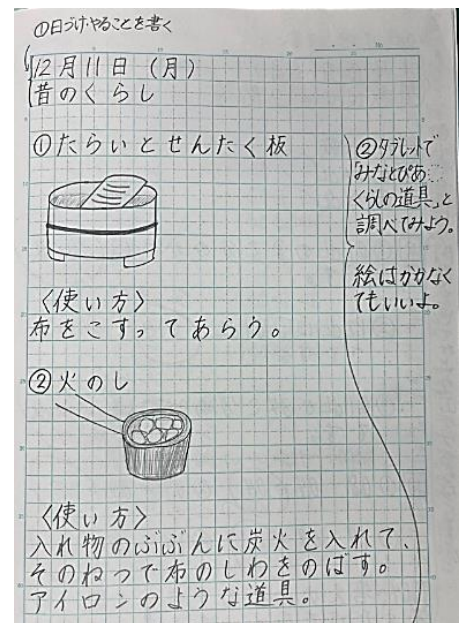 ①日づけ・やることを書く
12月11日(月)
昔のくらし
①たらいとせんたく板
〈使い方〉
布をこすってあらう。
②火のし
〈使い方〉
入れ物のぶぶんに炭火を入れて、
そのねつで布のしわをのばす。
アイロンのような道具。
②タブレットで
「みなとぴあ…
くらしの道具」と
調べてみよう。
絵はかかなく
てもいいよ。